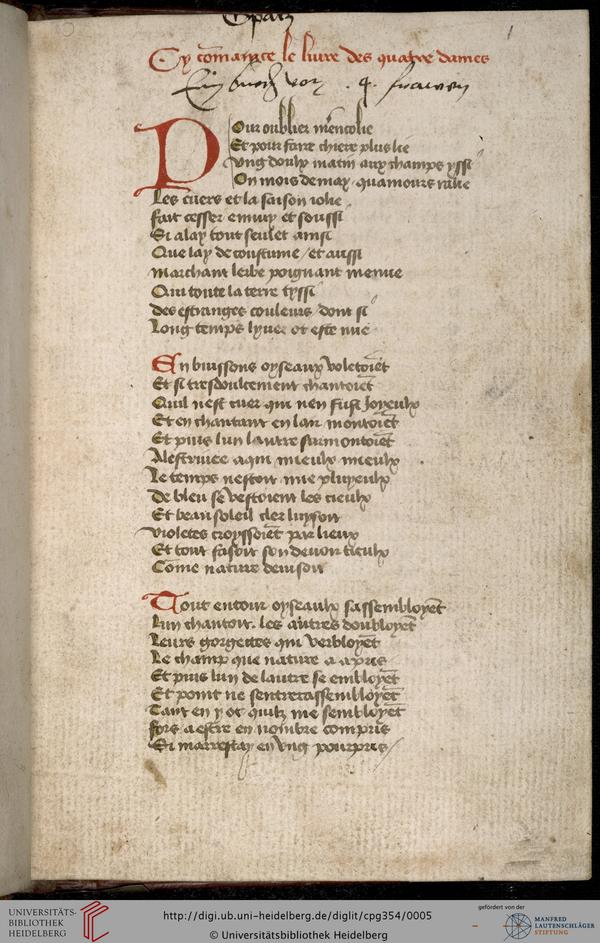 1
Cy cōmance le livre des quatre dames
Ein buch von .4. frawen
Pour oublier mencolie
Et pour faire chiere plus lie
Ung doulx matin aux champs yssi
On mois de may quamours ralie
Les cuers et la saison iolie
fait cesser ennuy et soussi
Si alay tout seulet ainsi
Que lay de coustume / et aussi
marchant lerbe poignant menue
Qui toute la terre tyssi
des estranges couleurs dont si
Long temps lyver ot este nue
En buissons oyseaux voletoiēt
Et si tresdoulcement chantoiēt
Quil nest cuer qui nen fust Joyeulx
Et en chantant en lair montoiēt
Et puis lun lautre surmontoiēt
Alestrivee aqui mieulx mieulx
Le temps nestoit mie pluyeulx
De bleu se vestoient les cieulx
Et beau soleil cler luysoit
violetes croyssoiēt par lieux
Et tout faisoit son devoir tieulx
Cōme nature devisoit
Tout entour oyseaulx sassembloyēt
Lun chantoit. les autres doubloyēt
Leurs gorgettes qui verbloyēt
Le champ que nature a apris
Et puis lun de lautre se embloyēt
Et point ne sentreressembloyēt
Tant en y ot quilz me sembloyēt
fors a estre en nombre compris
Si marrestay en ung pourpris /
UNIVERSITÄTS-
BIBLIOTHEK
HEIDELBERG
http://digi.ub.uni-heidelberg.de/diglit/cpg354/0005
© Universitätsbibliothek Heidelberg
gefördert von der
MANFRED
LAUTENSCHLÄGER
STIFTUNG